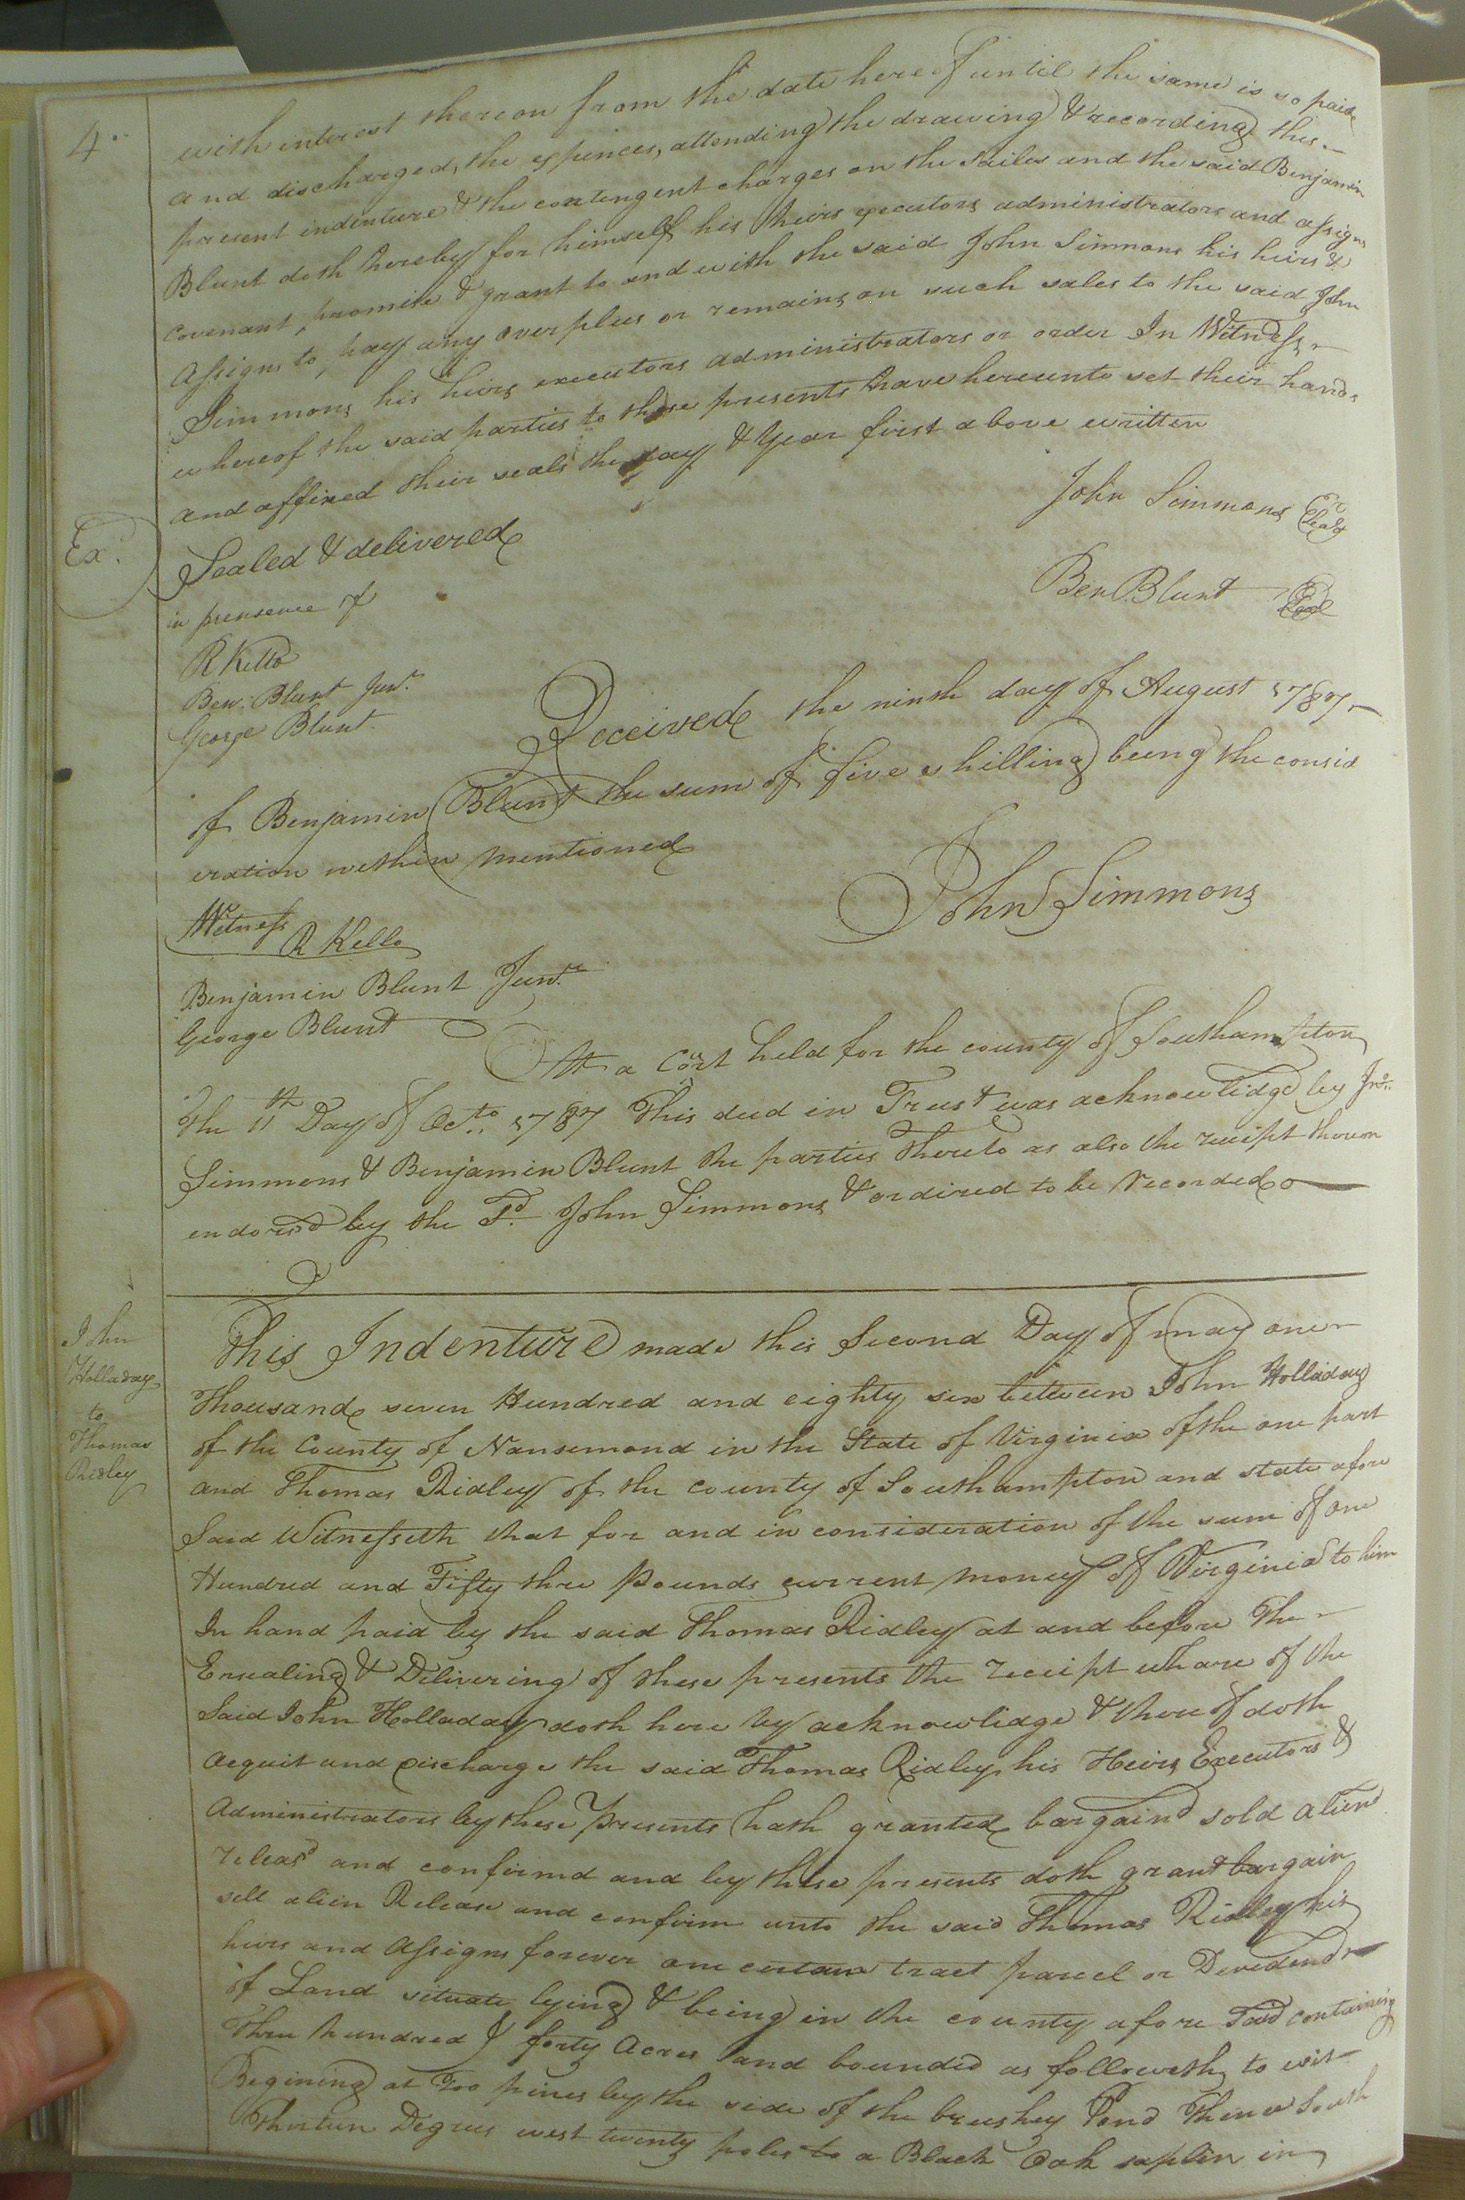 4.
with interest thereon from the date hereof until the same is so paid
and discharged, the expences, attending the drawing & recording this
present indenture & the contengent charges on the Sailes and the said Benjamin
Blunt doth hereby for himself his heirs executors administrators and assigns
covenant, promise & grant to and with the said John Simmons his heirs &
Assigns to, pay any overplus or remains on such sales to the said John
Simmons his heirs executors administrators or order In Witness
whereof the said parties to these presents have hereunto set their hands
and affixed their seals the day & Year first above written
Ex.
Sealed & delivered
in presence of
John Simmons Seal
Ben. Blunt Seal
R Kello
Ben: Blunt Junr.
George Blunt.
Received the ninth day of August 1787
of Benjamin Blunt the sum of five shilling being the consid
eration within mentioned
John Simmons
Witness
R Kello
Benjamin Blunt Junr.
George Blunt
At a Court held for the county of Southampton
the 11th Day of Octo. 1787 This deed in Trust was acknowlidge by Jno.
Simmons & Benjamin Blunt the parties Thereto as also the receipt thereon
endorsd by the Sd. John Simmons & ordired to be recorded
John
Holladay
to
Thomas
Ridley
This Indenture made this Second Day of may one
Thousand seven Hundred and eighty six between John Holladay
of the County of Nansemond in the State of Virginia of the one part
and Thomas Ridley of the county of Southampton and state afore
Said Witnesseth that for and in consideration of the sum of one
Hundred and Fifty three Pounds current money of Virginia to him
In hand paid by the said Thomas Ridley at and before The
Ensealing & Delivering of these presents the receipt whare of the
Said John Holladay doth here by acknowlidge & there of doth
acquit and discharge the said Thomas Ridley his Heirs Executors &
Administrators by these Presents hath granted bargaind sold aliend
releasd and confirmd and by these presents doth grant bargain
sell alien Release and confirm unto the said Thomas Ridley his
heirs and Assigns forever one certain tract parcel or Devidend
of Land situate lying & being in the county afore Said containing
three hundred & forty Acres and bounded as followeth, to wit
Begining at Too pines by the side of the brushey Pond Thence South
Thirteen Degrees west twenty poles to a Black Oak saplin in